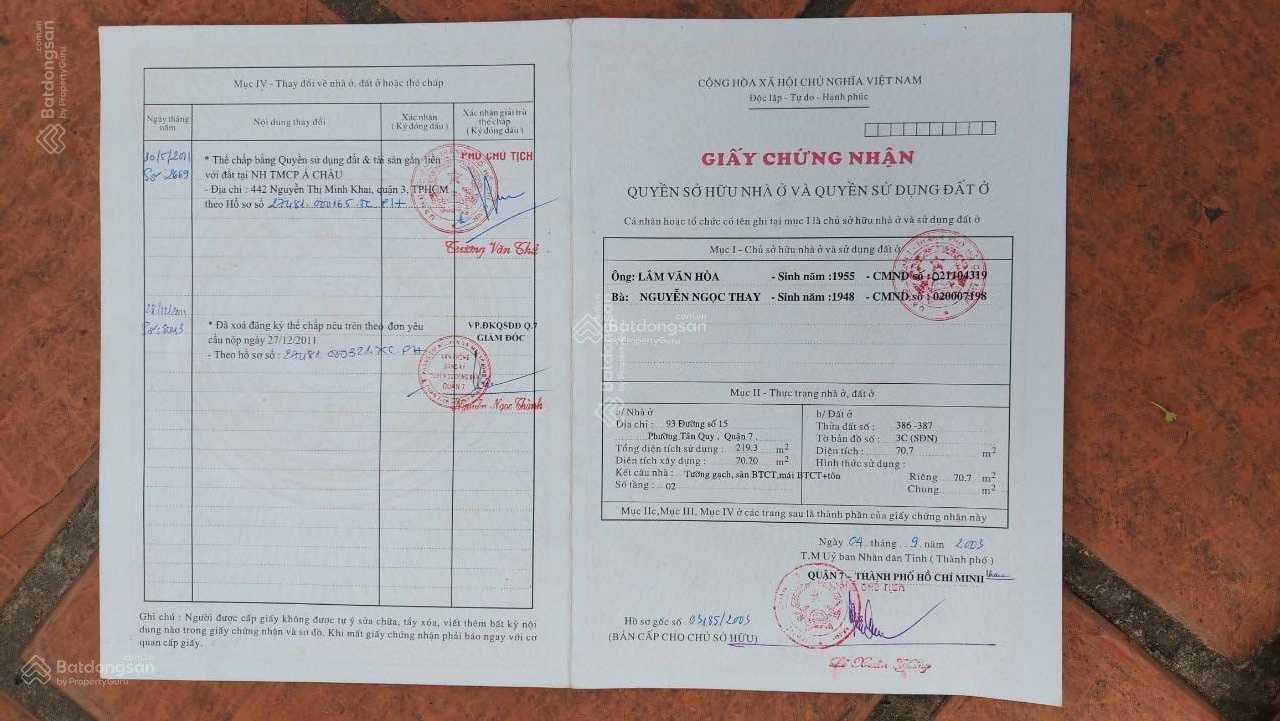 Mục IV - Thay đổi về nhà ở, đất ở hoặc thế chấp
Ngày tháng năm
Nội dung thay đổi
Xác nhận
( Ký đóng dấu )
Xác nhận giải trừ
thế chấp
( Ký đóng dấu )
30/5/2011
Số 2669
* Thế chấp bằng Quyền sử dụng đất & tài sản gắn liền
với đất tại NH TMCP Á CHÂU
- Địa chỉ : 442 Nguyễn Thị Minh Khai, quận 3, TPHCM
theo Hồ sơ số 27481.000165.TC.PH
PHÓ CHỦ TỊCH
Trương Văn Thê
* Đã xoá đăng ký thế chấp nêu trên theo đơn yêu
cầu nộp ngày 27/12/2011
- Theo hồ sơ số : 27481.000321.XC.PH
VP.ĐKQSDĐ Q.7
GIÁM ĐỐC
QUẬN 7
Nguyễn Ngọc Thành
Ghi chú : Người được cấp giấy không được tự ý sửa chữa, tẩy xóa, viết thêm bất kỳ nội
dung nào trong giấy chứng nhận và sơ đồ. Khi mất giấy chứng nhận phải báo ngay với cơ
quan cấp giấy.
CỘNG HÒA XÃ HỘI CHỦ NGHĨA VIỆT NAM
Độc lập - Tự do - Hạnh phúc
GIẤY CHỨNG NHẬN
QUYỀN SỞ HỮU NHÀ Ở VÀ QUYỀN SỬ DỤNG ĐẤT Ở
Cá nhân hoặc tổ chức có tên ghi tại mục I là chủ sở hữu nhà ở và sử dụng đất ở
Mục I - Chủ sở hữu nhà ở và sử dụng đất ở
Ông: LÂM VĂN HÒA - Sinh năm :1955 - CMND số : 021104319
Bà: NGUYỄN NGỌC THAY - Sinh năm :1948 - CMND số : 020007198
Mục II - Thực trạng nhà ở, đất ở
a/ Nhà ở
Địa chỉ : 93 Đường số 15
Phường Tân Quy , Quận 7 ,
Tổng diện tích sử dụng : 219.3 m2
Diện tích xây dựng : 70.20 m2
Kết cấu nhà : Tường gạch, sàn BTCT,mái BTCT+tôn
Số tầng : 02
b/ Đất ở
Thửa đất số : 386 -387
Tờ bản đồ số : 3C (SĐN)
Diện tích : 70.7 m2
Hình thức sử dụng :
Riêng 70.7 m2
Chung m2
Mục IIc,Mục III, Mục IV ở các trang sau là thành phần của giấy chứng nhận này
Ngày 04 tháng 9 năm 2003
T.M Uỷ ban Nhân dân Tỉnh ( Thành phố )
QUẬN 7 - THÀNH PHỐ HỒ CHÍ MINH
CHỦ TỊCH
Hồ sơ gốc số 03185/2003
(BẢN CẤP CHO CHỦ SỞ HỮU)
Batdongsan
.com.vn
by PropertyGuru
Batdongsan
.com.vn
by PropertyGuru
Batdongsan
.com.vn
by PropertyGuru
Batdongsan
.com.vn
by PropertyGuru